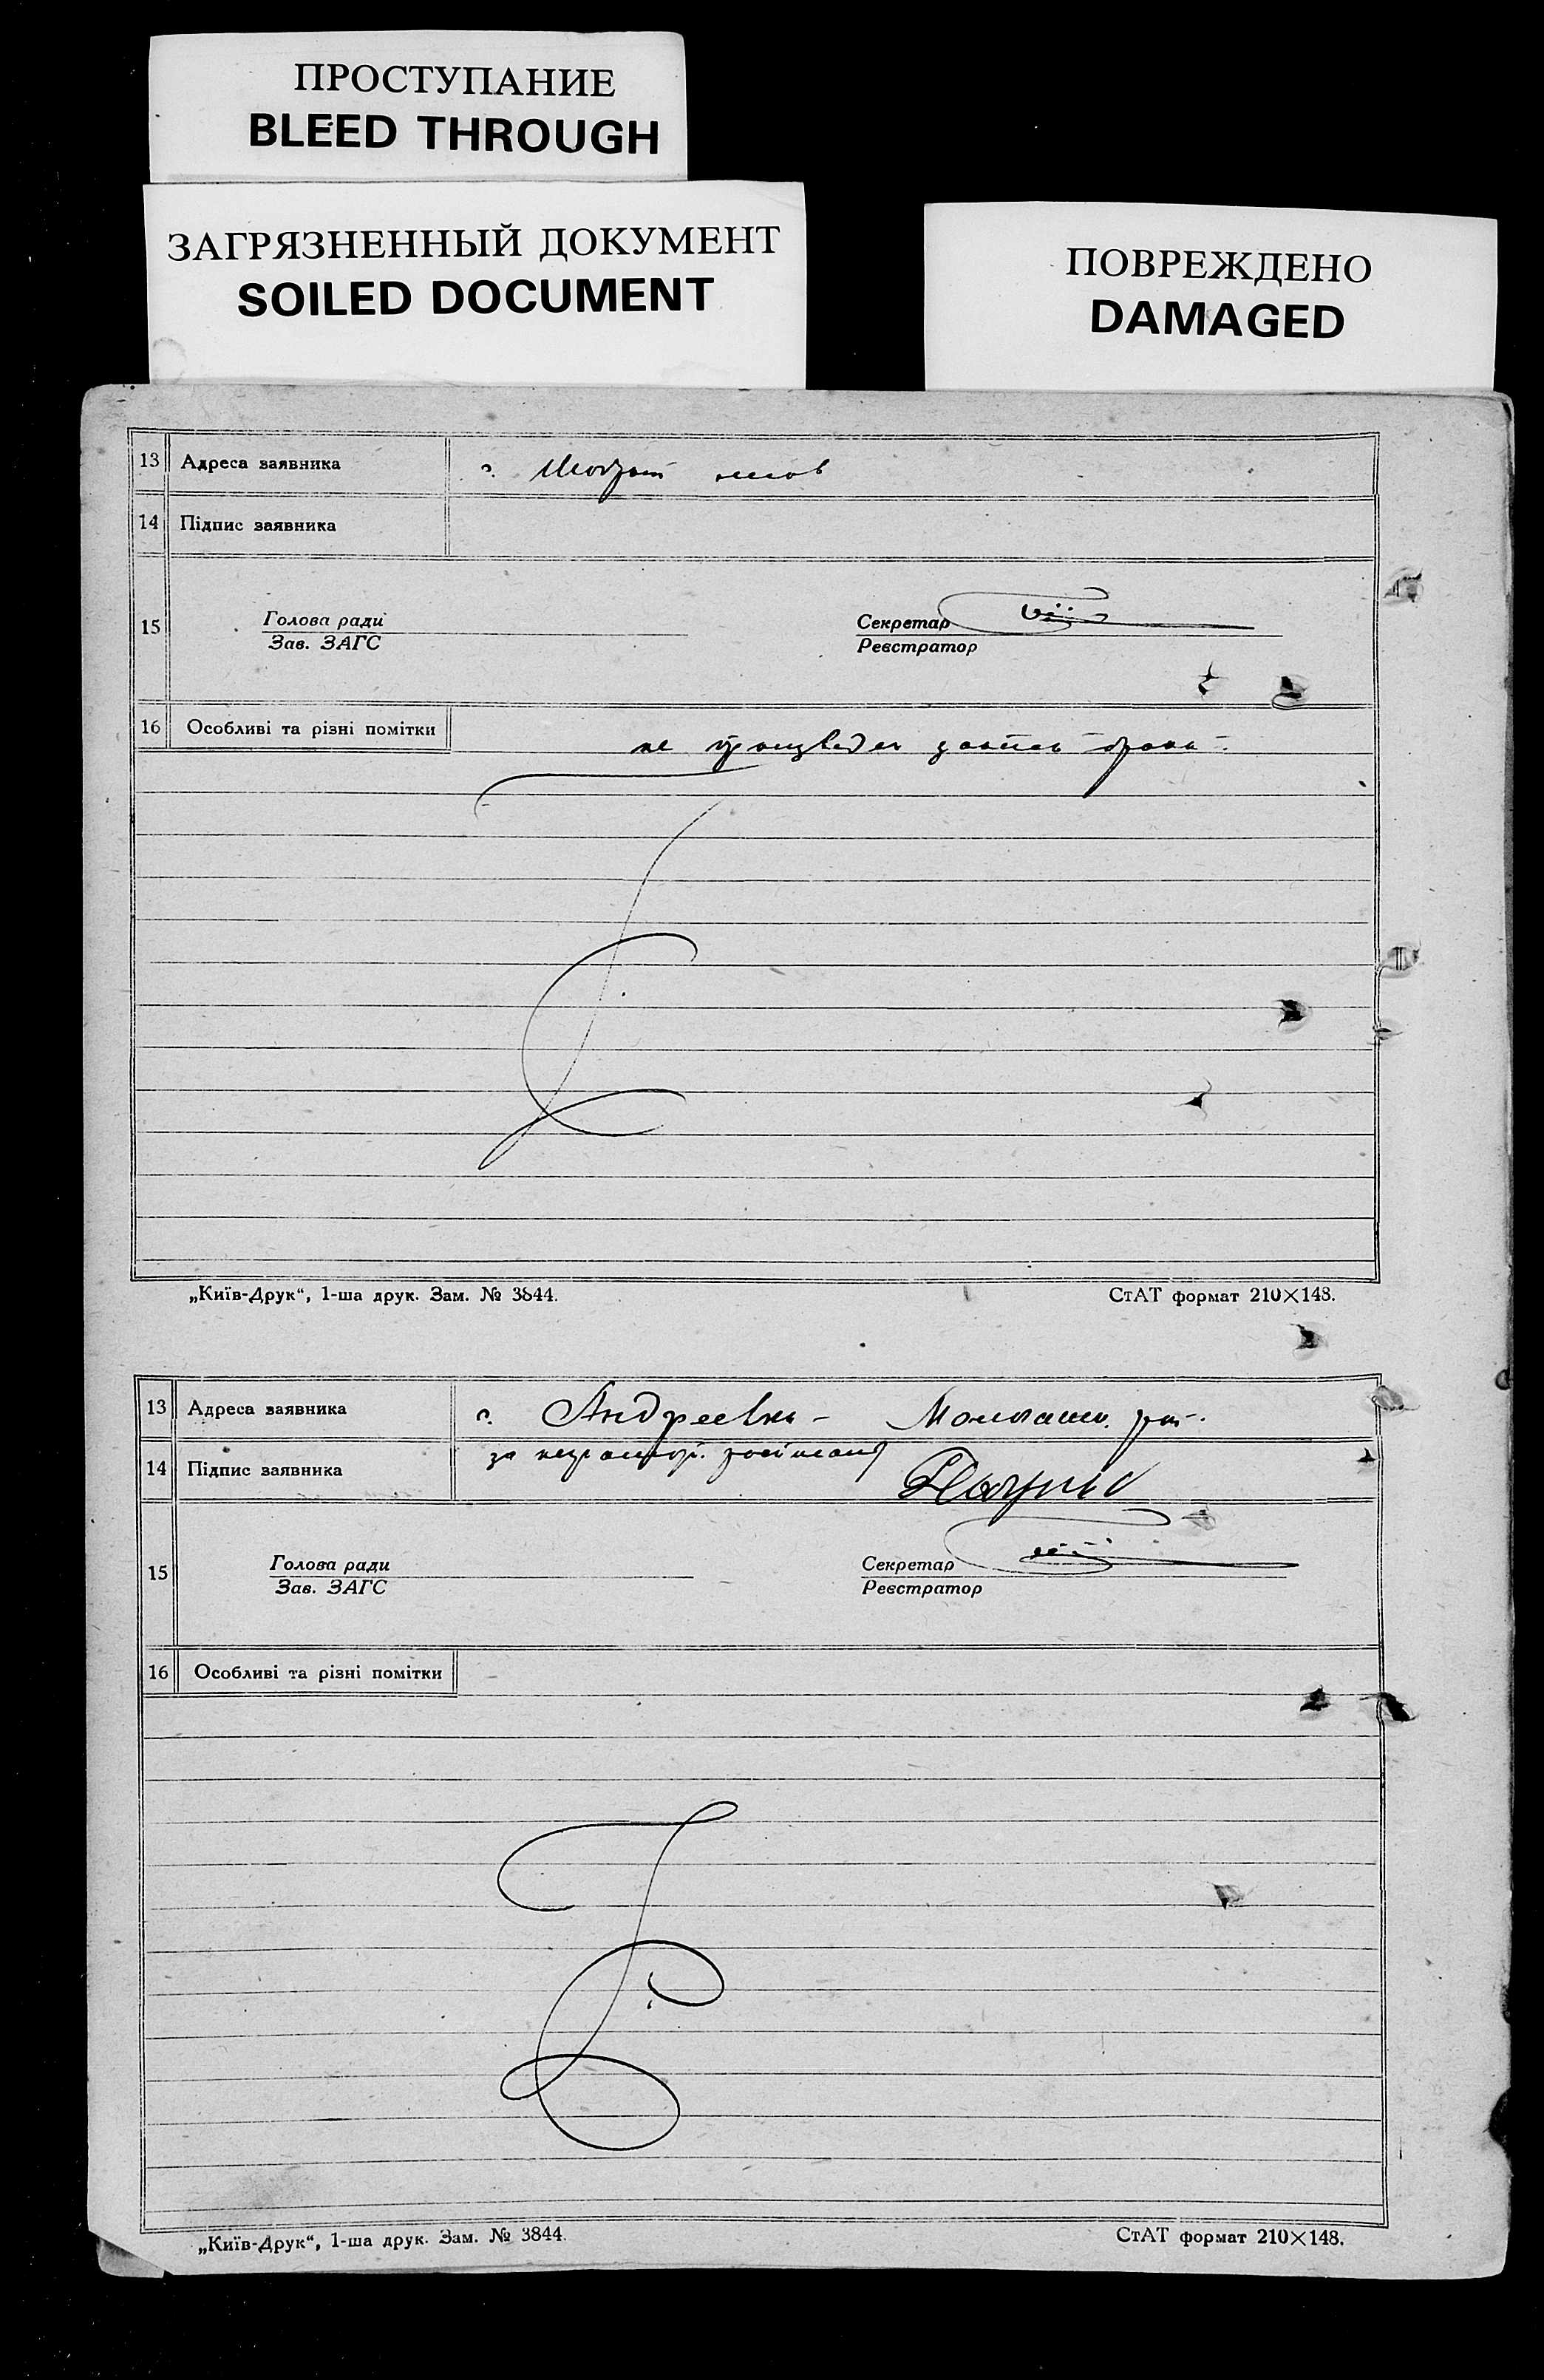 ПРОСТУПАНИЕ
BLEED THROUGH
ЗАГРЯЗНЕННЫЙ ДОКУМЕНТ
SOILED DOCUMENT
ПОВРЕЖДЕНО
DAMAGED
13 Адреса заявника с.
14 Підпис заявника
15 Голова ради Секретар
Зав. ЗАГС Реєстратор
16 Особливі та різні помітки не брака
„Київ-Друк“, 1-ша друк. Зам. № 3844. СтАТ формат 210×148.
13 Адреса заявника с. Андреевка -
14 Підпис заявника за
15 Голова ради Секретар
Зав. ЗАГС Реєстратор
16 Особливі та різні помітки
„Київ-Друк“, 1-ша друк. Зам. № 3844. СтАТ формат 210×148.